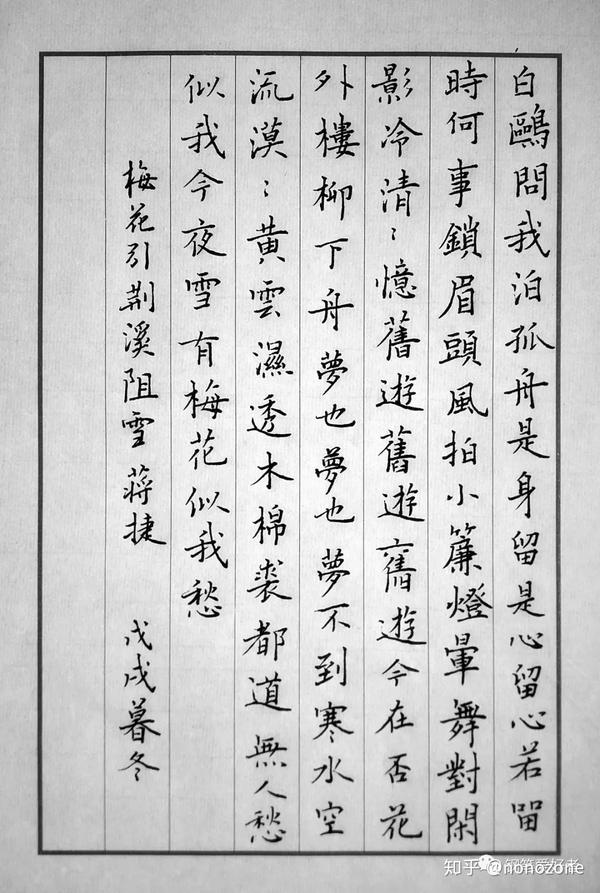 白鷗問我泊孤舟是身留是心留心若留
時何事鎖眉頭風拍小簾燈暈舞對閑
影冷清〻憶舊遊舊遊舊遊今在否花
外樓柳下舟夢也夢也夢不到寒水空
流漠〻黃雲濕透木棉裘都道無人愁
似我今夜雪有梅花似我愁
梅花引荆溪阻雪蔣捷 戊戌暮冬
知乎 @nonozone